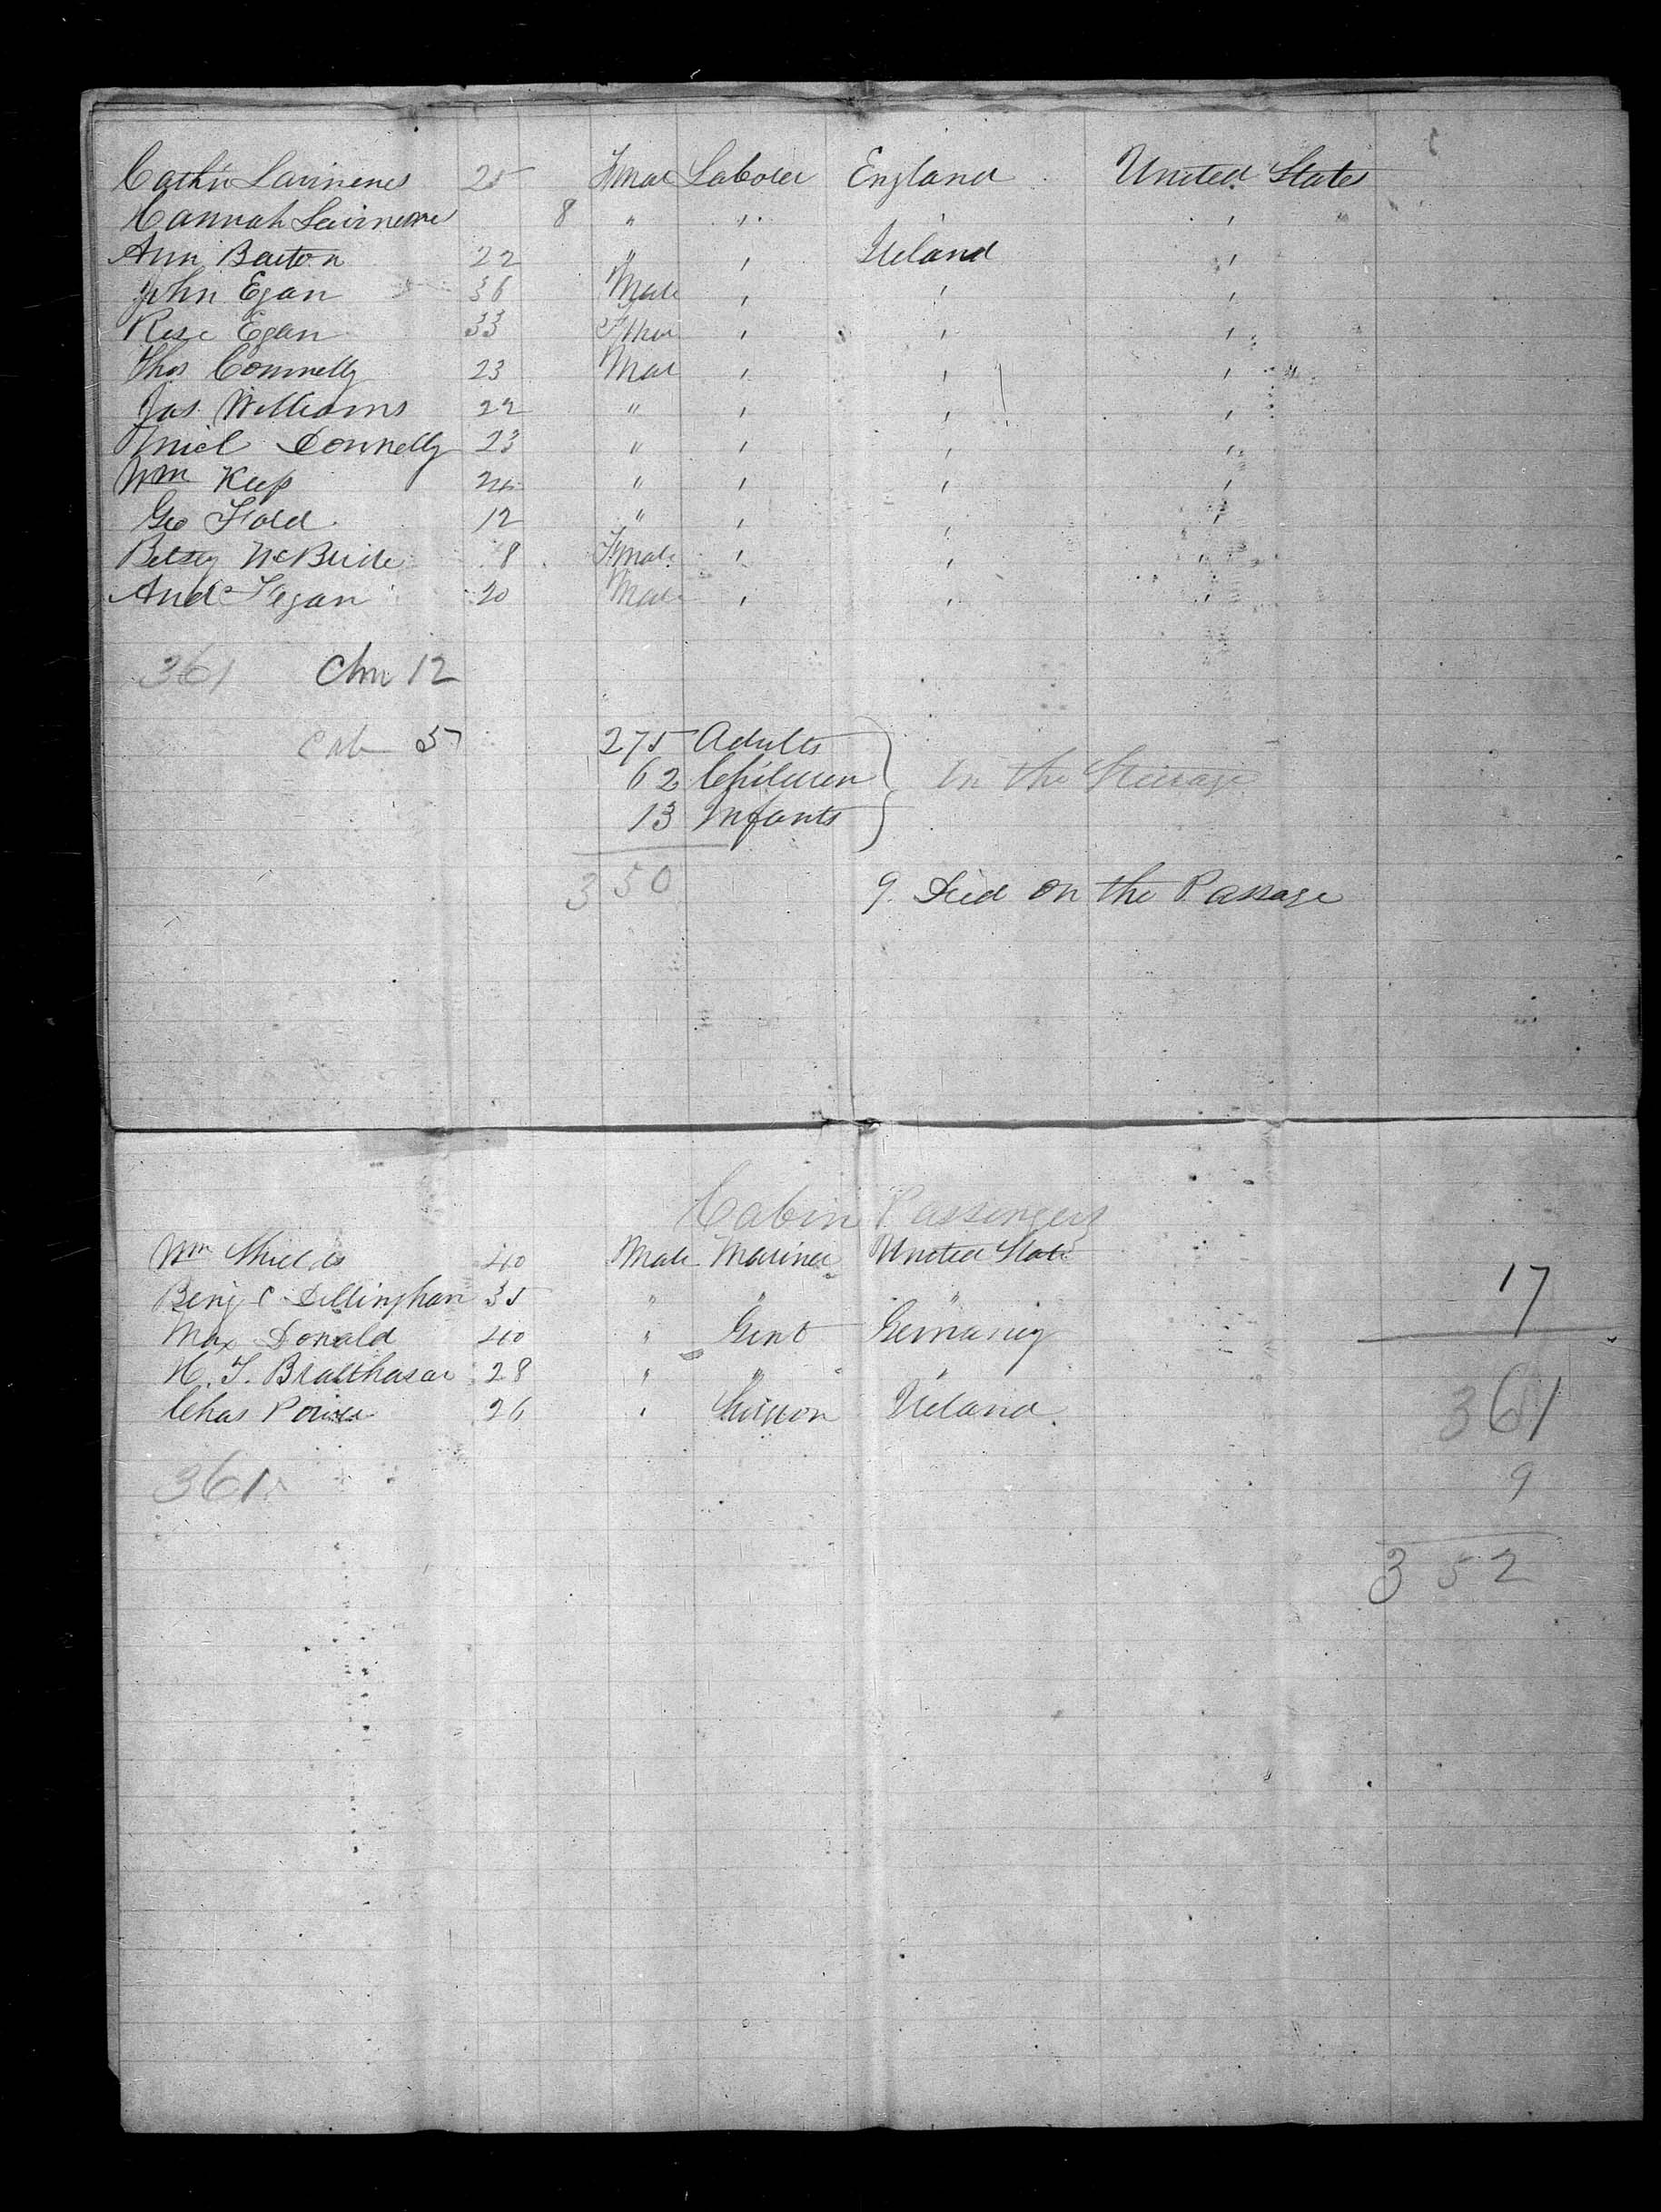 Cath'n Lavinenes 25 Femal Laborer England United States
Hannah Lavinenes 8 " " " "
Ann Barton 22 " " Ireland "
John Egan 36 Male " " "
Rose Egan 33 " " "
Thos Connelly 23 Mal " " " "
Jas Williams 22 " " " "
Mich Donnelly 23 " " " "
Wm Keep 24 " " " "
Geo Fold 12 " " " "
Betsy McBride 8 Female " " "
And Fegan 20 Male " " "
361 Chn 12
Cab 5
275 Adults
62 Children
13 Infants
In the Steerage
350
9. Died on the Passage
Cabin Passengers
Wm Shields 40 Male Mariner United State
Benj C. Dillingham 35 " " "
17
Max Donald 40 " Gent Germany
H. F. Bralthasar 28 " " "
Chas Power 26 " Surgeon Ireland
361
361
9
352